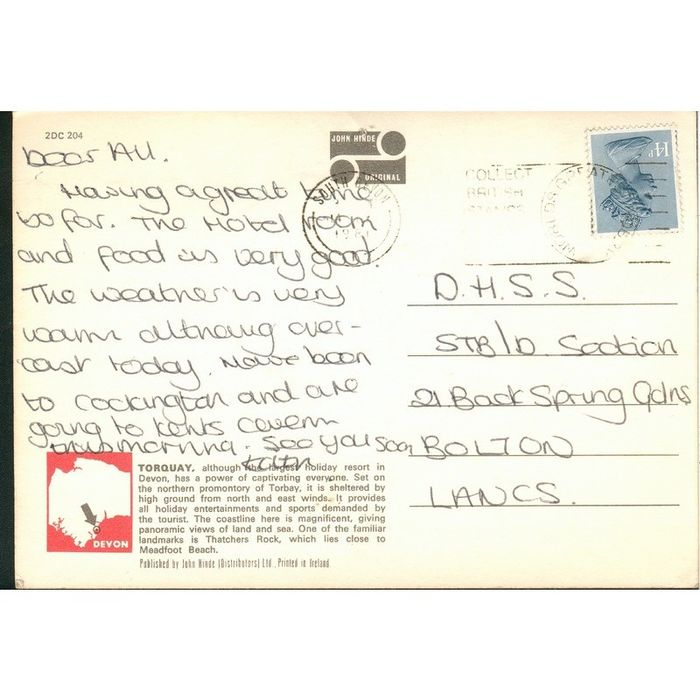 2DC 204
Dear All.
Having a great time
so far. The Hotel room
and food is very good.
The weather is very
warm althoug over-
cast today. Have been
to Cockington and are
going to Kents Cavern
this morning. See you soon
JOHN HINDE
ORIGINAL
SOUTH DEVON
COLLECT
BRITISH
STAMPS
14P
D.H.S.S.
STB/b Section
21 Back Spring Gdns
BOLTON
LANCS.
DEVON
TORQUAY, although the largest holiday resort in
Devon, has a power of captivating everyone. Set on
the northern promontory of Torbay, it is sheltered by
high ground from north and east winds. It provides
all holiday entertainments and sports demanded by
the tourist. The coastline here is magnificent, giving
panoramic views of land and sea. One of the familiar
landmarks is Thatchers Rock, which lies close to
Meadfoot Beach.
Published by John Hinde (Distributors) Ltd., Printed in Ireland.